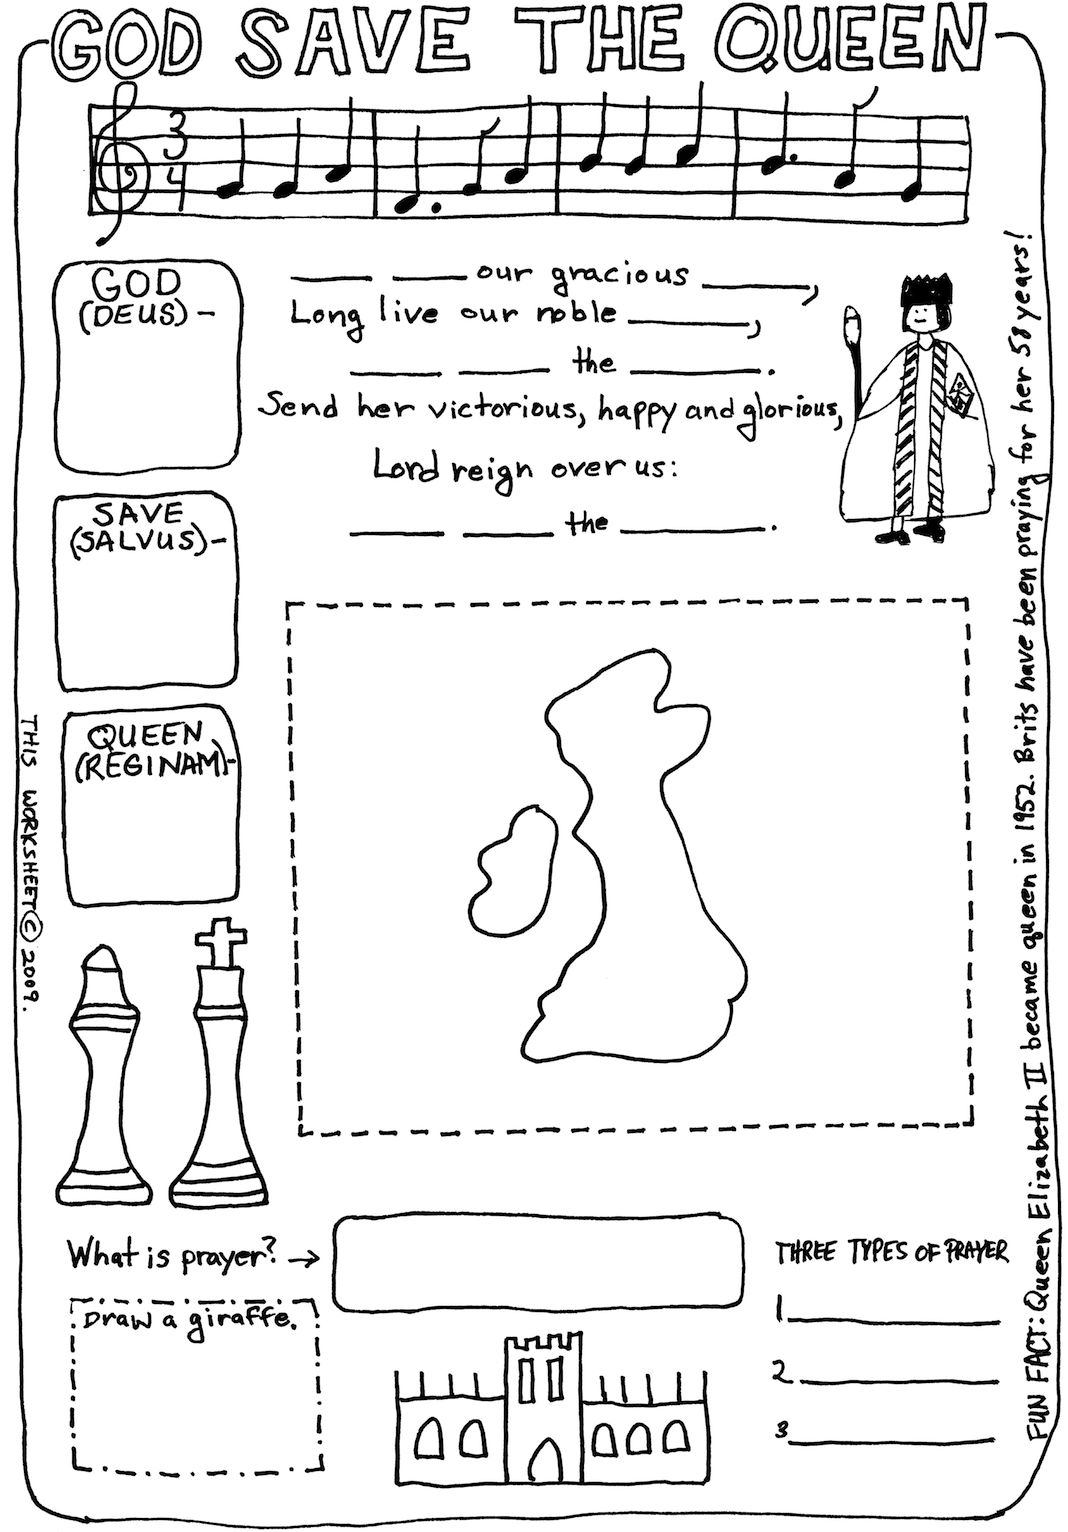 GOD SAVE THE QUEEN
3
4
GOD
(DEUS) -
____ ____ our gracious ______,
Long live our noble ______,
_____ _____ the _______.
Send her victorious, happy and glorious,
Lord reign over us:
_____ _____ the _______.
SAVE
(SALVUS)-
QUEEN
(REGINAM)-
What is prayer? →
Draw a giraffe.
THREE TYPES OF PRAYER
1.
2.
3
THIS WORKSHEET © 2009.
FUN FACT: Queen Elizabeth II became queen in 1952. Brits have been praying for her 58 years!